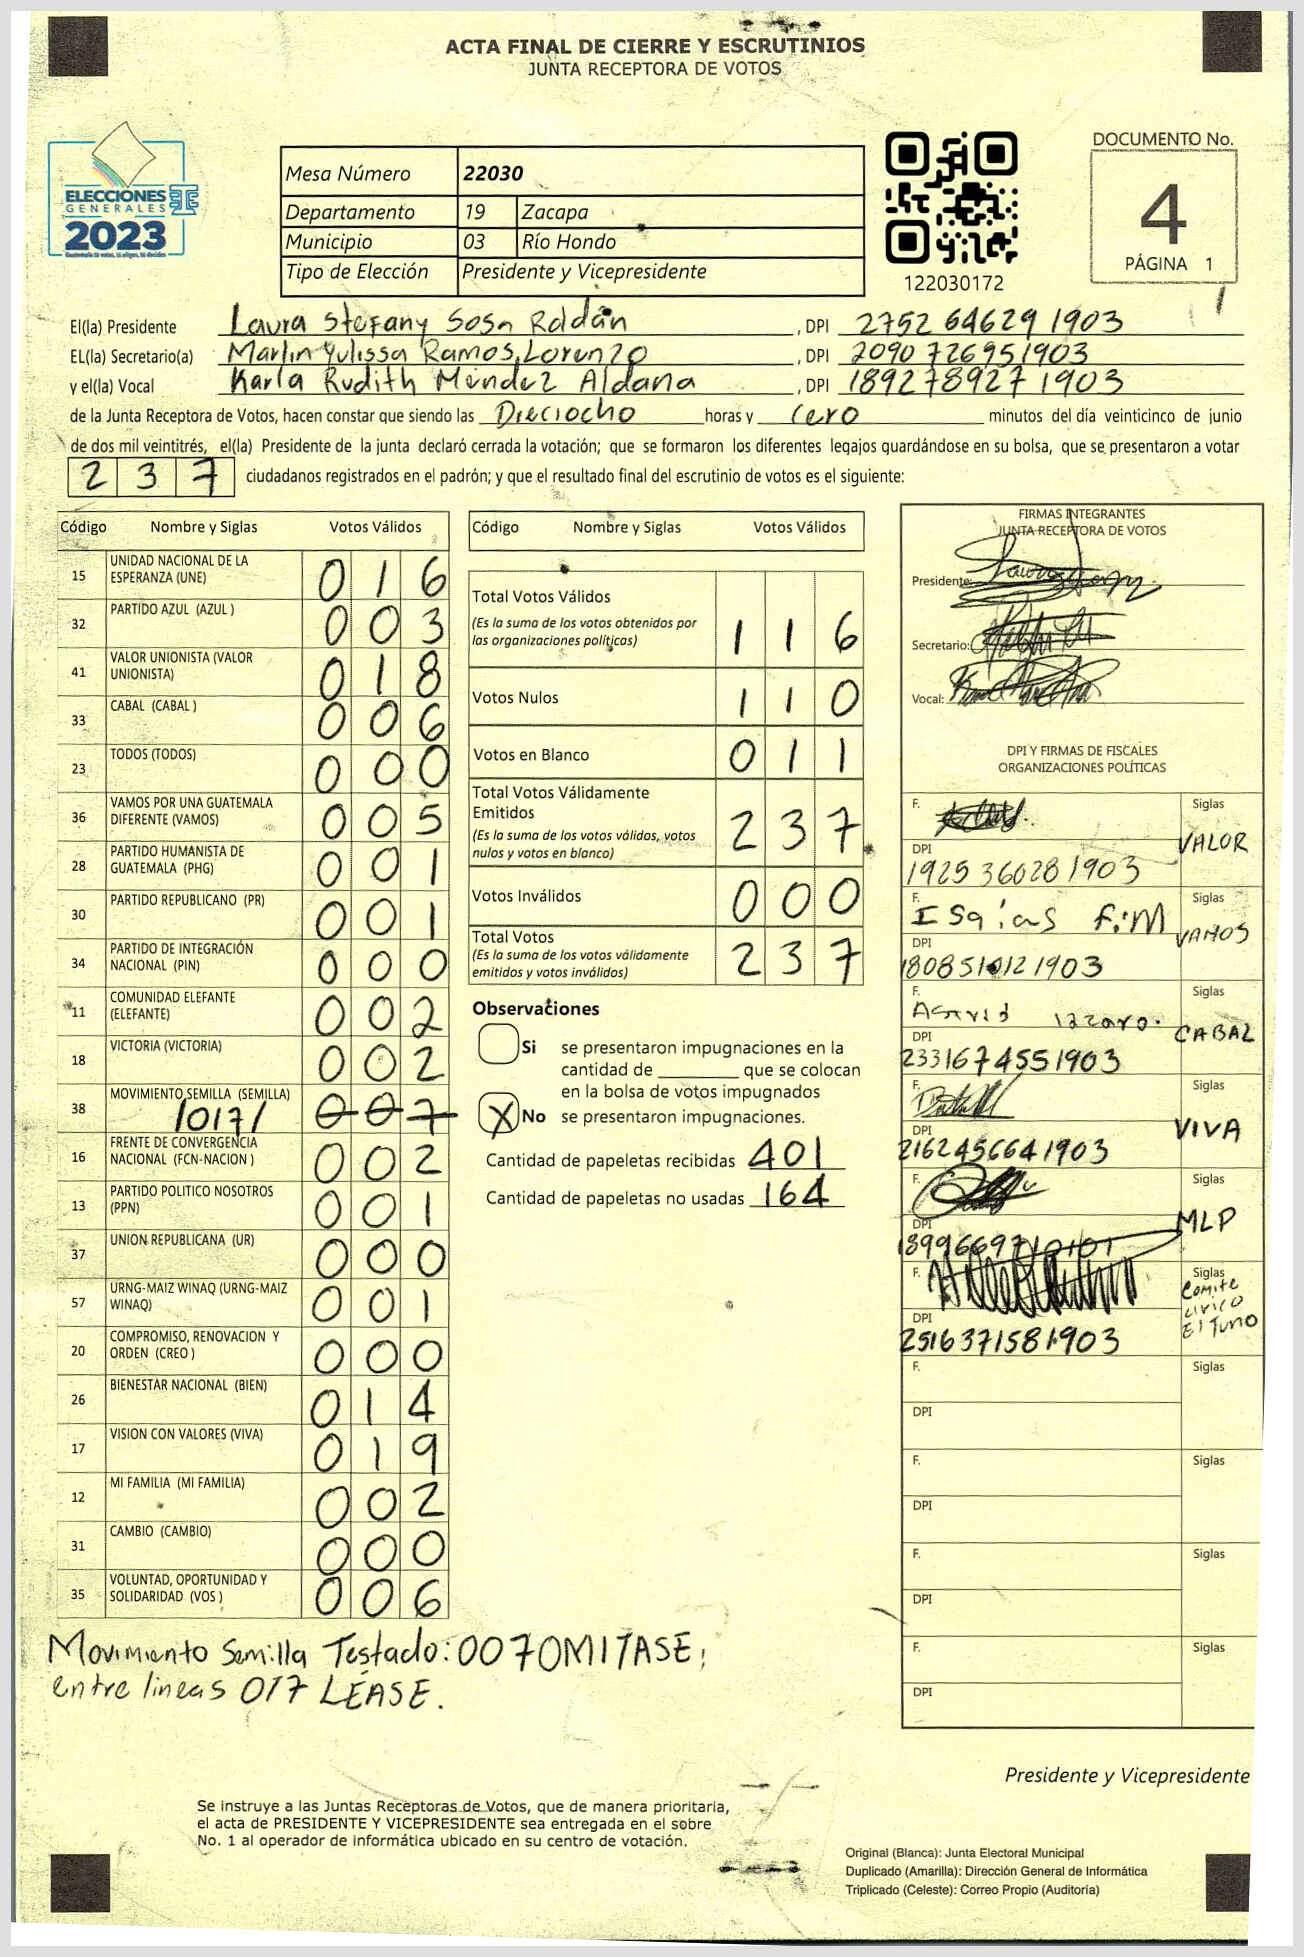 ACTA FINAL DE CIERRE Y ESCRUTINIOS
JUNTA RECEPTORA DE VOTOS
ELECCIONES
GENERALES
2023
Mesa Número 22030
Departamento 19 Zacapa
Municipio 03 Río Hondo
Tipo de Elección Presidente y Vicepresidente
122030172
DOCUMENTO No.
4
PÁGINA 1
El(la) Presidente Laura Stefany Sosa Roldán , DPI 2752 64629 1903
EL(la) Secretario(a) Marlin Yulissa Ramos Lorenzo , DPI 2090 72695 1903
y el(la) Vocal Karla Rudith Méndez Aldana , DPI 1892789271903
de la Junta Receptora de Votos, hacen constar que siendo las Dieciocho horas y cero minutos del día veinticinco de junio
de dos mil veintitrés, el(la) Presidente de la junta declaró cerrada la votación; que se formaron los diferentes legajos guardándose en su bolsa, que se presentaron a votar
237 ciudadanos registrados en el padrón; y que el resultado final del escrutinio de votos es el siguiente:
Código Nombre y Siglas Votos Válidos
15 UNIDAD NACIONAL DE LA ESPERANZA (UNE) 016
32 PARTIDO AZUL (AZUL ) 003
41 VALOR UNIONISTA (VALOR UNIONISTA) 018
33 CABAL (CABAL ) 006
23 TODOS (TODOS) 000
36 VAMOS POR UNA GUATEMALA DIFERENTE (VAMOS) 005
28 PARTIDO HUMANISTA DE GUATEMALA (PHG) 001
30 PARTIDO REPUBLICANO (PR) 001
34 PARTIDO DE INTEGRACIÓN NACIONAL (PIN) 000
11 COMUNIDAD ELEFANTE (ELEFANTE) 002
18 VICTORIA (VICTORIA) 002
38 MOVIMIENTO SEMILLA (SEMILLA) /017/ 007
16 FRENTE DE CONVERGENCIA NACIONAL (FCN-NACION ) 002
13 PARTIDO POLITICO NOSOTROS (PPN) 001
37 UNION REPUBLICANA (UR) 000
57 URNG-MAIZ WINAQ (URNG-MAIZ WINAQ) 001
20 COMPROMISO, RENOVACION Y ORDEN (CREO ) 000
26 BIENESTAR NACIONAL (BIEN) 014
17 VISION CON VALORES (VIVA) 019
12 MI FAMILIA (MI FAMILIA) 002
31 CAMBIO (CAMBIO) 000
35 VOLUNTAD, OPORTUNIDAD Y SOLIDARIDAD (VOS ) 006
Movimiento Semilla Testado: 007 OMITASE;
entre lineas 017 LÉASE.
Código Nombre y Siglas Votos Válidos
Total Votos Válidos 116
(Es la suma de los votos obtenidos por
las organizaciones políticas)
Votos Nulos 110
Votos en Blanco 011
Total Votos Válidamente
Emitidos 237
(Es la suma de los votos válidos, votos
nulos y votos en blanco)
Votos Inválidos 000
Total Votos 237
(Es la suma de los votos válidamente
emitidos y votos inválidos)
Observaciones
Si se presentaron impugnaciones en la
cantidad de ________ que se colocan
en la bolsa de votos impugnados
X No se presentaron impugnaciones.
Cantidad de papeletas recibidas 401
Cantidad de papeletas no usadas 164
FIRMAS INTEGRANTES
JUNTA RECEPTORA DE VOTOS
Presidente:
Secretario:
Vocal:
DPI Y FIRMAS DE FISCALES
ORGANIZACIONES POLÍTICAS
F. Siglas VALOR
DPI 1925 36028 1903
F. Isaias F.M Siglas VAMOS
DPI 1808510121903
F. Siglas CABAL
DPI 2331674551903
F. Siglas VIVA
DPI 2162456641903
F. Siglas MLP
DPI 1899669710101
F. Siglas Comite civico El Tuno
DPI 2516371581903
F. Siglas
DPI
F. Siglas
DPI
F. Siglas
DPI
F. Siglas
DPI
Presidente y Vicepresidente
Se instruye a las Juntas Receptoras de Votos, que de manera prioritaria,
el acta de PRESIDENTE Y VICEPRESIDENTE sea entregada en el sobre
No. 1 al operador de informática ubicado en su centro de votación.
Original (Blanca): Junta Electoral Municipal
Duplicado (Amarilla): Dirección General de Informática
Triplicado (Celeste): Correo Propio (Auditoría)